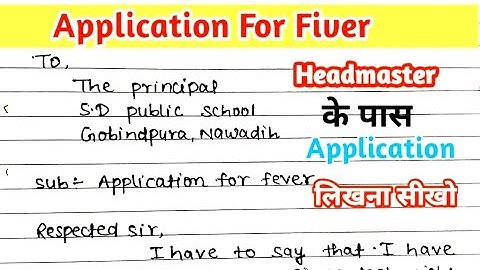 Application For Fiver
To,
The principal
S.D public school
Gobindpura, Nawadih
Sub:- Application for fever
Respected sir,
I have to say that I have
Headmaster
के पास
Application
लिखना सीखो